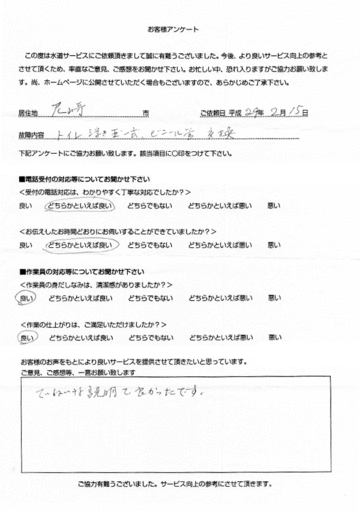 お客様アンケート
この度は水道サービスにご依頼頂きまして誠に有難うございました。今後、より良いサービス向上の参考と
させて頂くため、率直なご意見、ご感想をお聞かせ下さい。お忙しい中、恐れ入りますがご協力お願い致しま
す。尚、ホームページに公開させていただく場合もございますので、あらかじめご了承下さい。
居住地 尼崎 市 ご依頼日 平成 29年 2月 15日
故障内容 トイレ 浮き玉 ビニール管 交換
下記アンケートにご協力お願い致します。該当項目に〇印をつけて下さい。
■電話受付の対応等についてお聞かせ下さい
<受付の電話対応は、わかりやすく丁寧な対応でしたか?>
良い どちらかといえば良い どちらでもない どちらかといえば悪い 悪い
<お伝えしたお時間どおりにお伺いすることができていましたか?>
良い どちらかといえば良い どちらでもない どちらかといえば悪い 悪い
■作業員の対応等についてお聞かせ下さい
<作業員の身だしなみは、清潔感がありましたか?>
良い どちらかといえば良い どちらでもない どちらかといえば悪い 悪い
<作業の仕上がりは、ご満足いただけましたか?>
良い どちらかといえば良い どちらでもない どちらかといえば悪い 悪い
お客様のお声をもとにより良いサービスを提供させて頂きたいと思っています。
ご意見、ご感想等、一言お願い致します
ていねいな説明で良かったです。
ご協力有難うございました。サービス向上の参考にさせて頂きます。